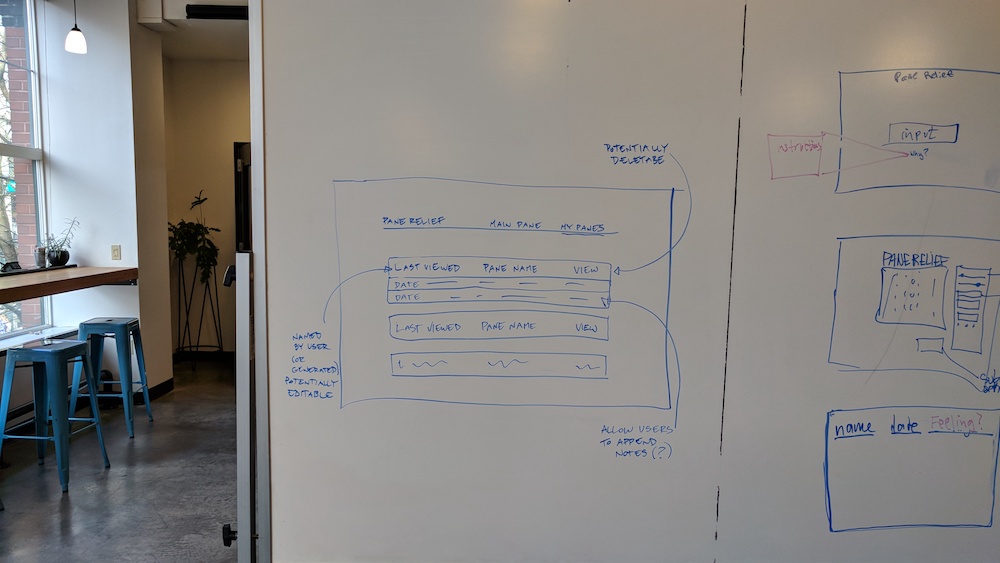 POTENTIALLY
DELETABE
PANE RELIEF MAIN PANE MY PANES
LAST VIEWED PANE NAME VIEW
DATE
DATE
LAST VIEWED PANE NAME VIEW
NAMED
BY USER
(OR
GENERATED)
POTENTIALLY
EDITABLE
ALLOW USERS
TO APPEND
NOTES (?)
Pane Relief
input
why?
PANE RELIEF
name date Feeling?